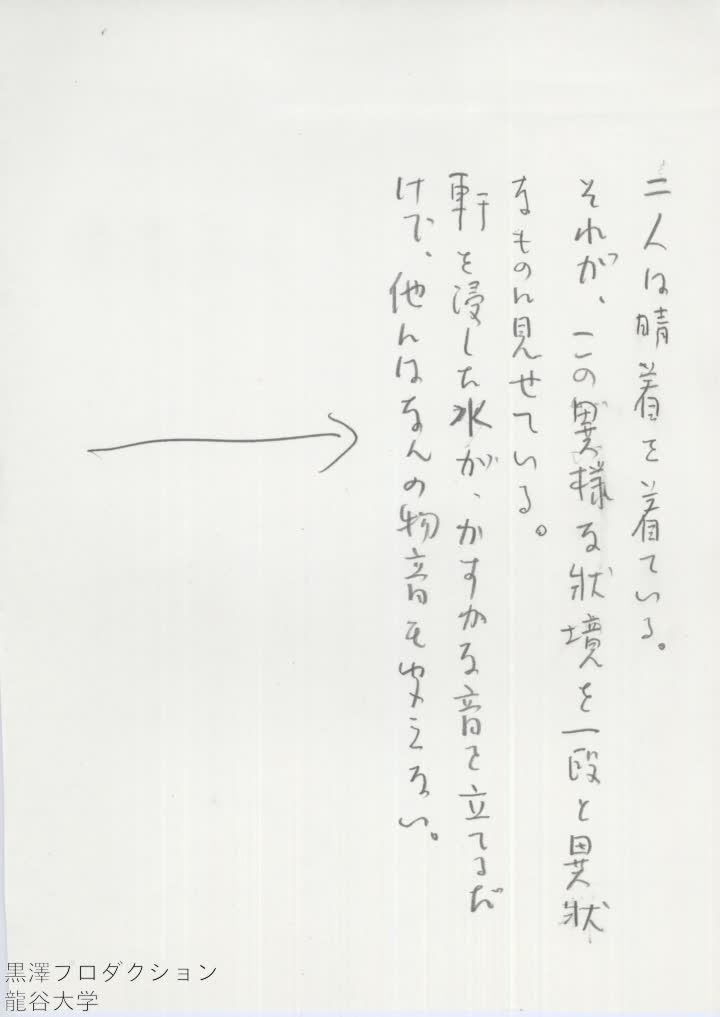 二人は晴着を着ている。
それが、この異様な状境を一段と異状
なものに見せている。
軒を浸した水が、かすかな音を立てるだ
けで、他にはなんの物音も聞えない。
黒澤フロダクション
龍谷大学